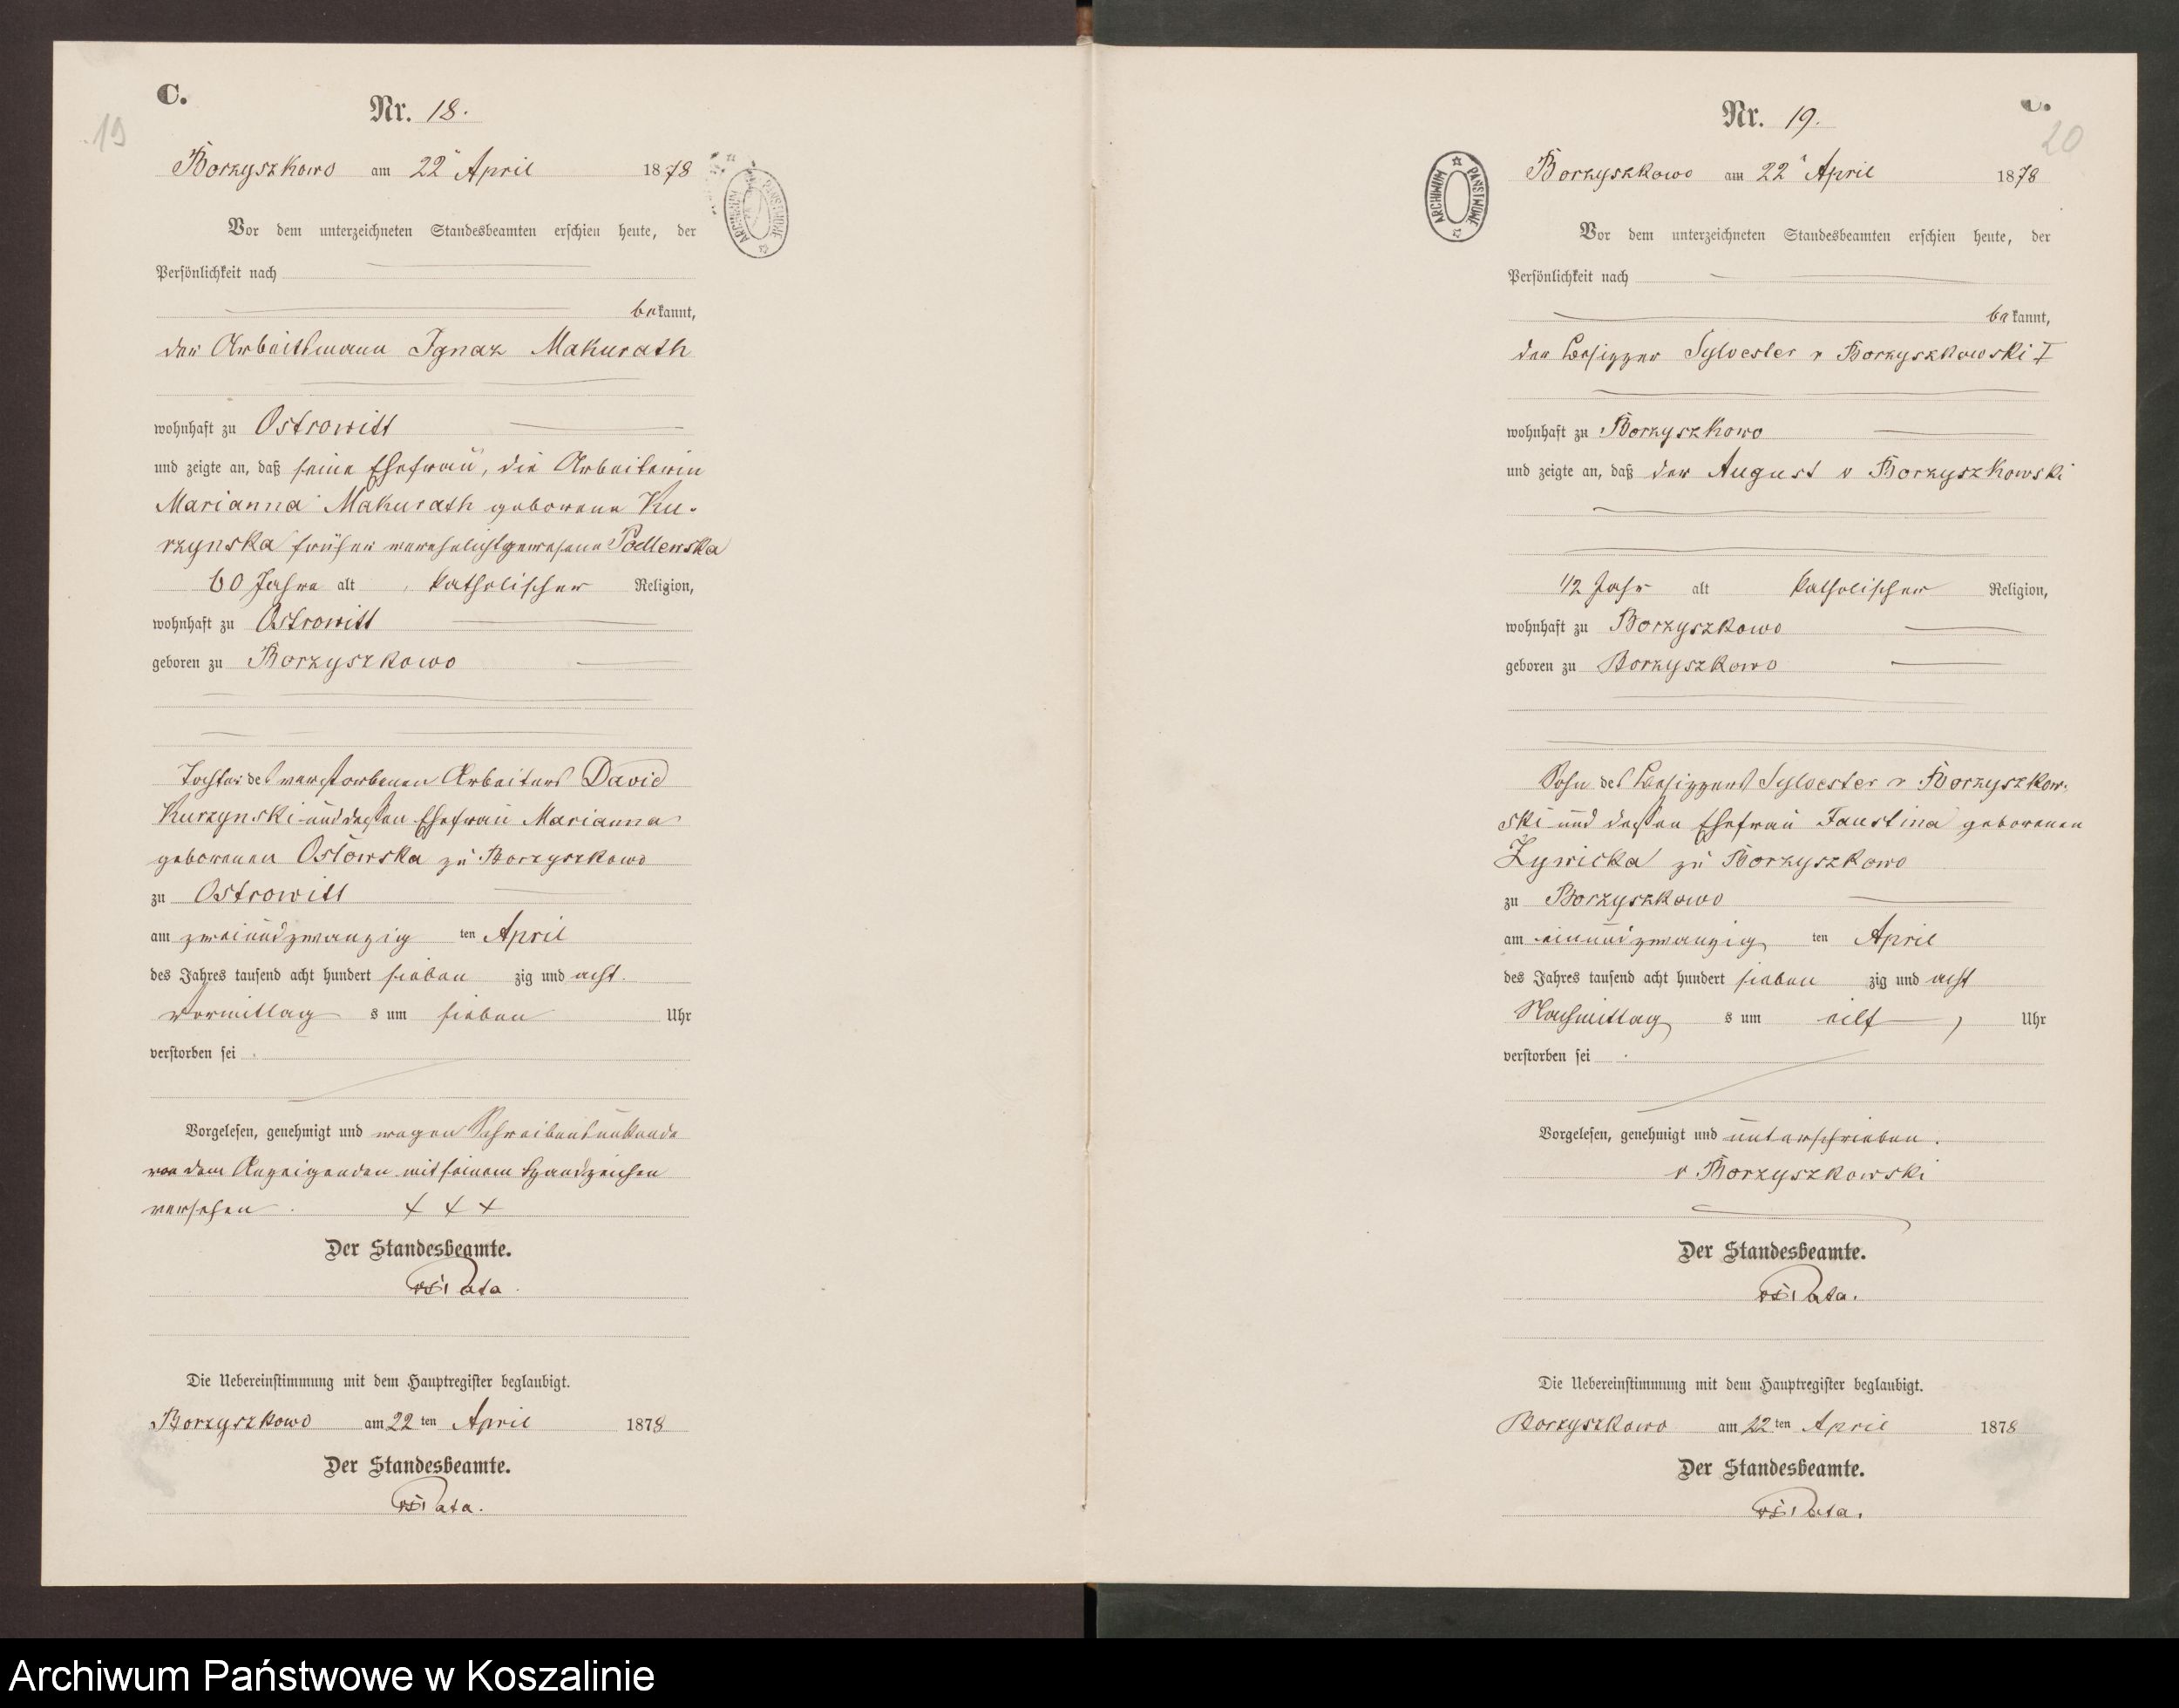 C.
19
Nr. 18.
Borzyszkowo am 22" April 1878
Vor dem unterzeichneten Standesbeamten erschien heute, der
Persönlichkeit nach
bekannt,
der Arbeitsmann Ignaz Makurath
wohnhaft zu Ostrowitt
und zeigte an, daß seine Ehefrau, die Arbeiterin
Marianna Makurath geborene Ku-
rzynska früher verehelicht gewesene Podlewska
60 Jahre alt, katholischer Religion,
wohnhaft zu Ostrowitt
geboren zu Borzyszkowo
Tochter des verstorbenen Arbeiters David
Kurzynski und dessen Ehefrau Marianna
geborenen Ostowska zu Borzyszkowo
zu Ostrowitt
am zweiundzwanzig ten April
des Jahres tausend acht hundert sieben zig und acht
Vormittag s um sieben Uhr
verstorben sei
Vorgelesen, genehmigt und wegen Schreibensunkunde
von dem Anzeigenden mit seinem Handzeichen
versehen. + + +
Der Standesbeamte.
Pata.
Die Uebereinstimmung mit dem Hauptregister beglaubigt.
Borzyszkowo am 22 ten April 1878
Der Standesbeamte.
Pata.
ARCHIWUM PAŃSTWOWE
C.
20
Nr. 19.
Borzyszkowo am 22" April 1878
ARCHIWUM PAŃSTWOWE
Vor dem unterzeichneten Standesbeamten erschien heute, der
Persönlichkeit nach
bekannt,
der Besitzer Sylvester v Borzyszkowski I
wohnhaft zu Borzyszkowo
und zeigte an, daß der August v Borzyszkowski
1/2 Jahr alt katholischer Religion,
wohnhaft zu Borzyszkowo
geboren zu Borzyszkowo
Sohn des Besitzers Sylvester v Borzyszkow-
ski und dessen Ehefrau Faustina geborenen
Zywicka zu Borzyszkowo
zu Borzyszkowo
am einundzwanzig ten April
des Jahres tausend acht hundert sieben zig und acht
Nachmittag s um eilf Uhr
verstorben sei
Vorgelesen, genehmigt und unterschrieben.
v Borzyszkowski
Der Standesbeamte.
Pata.
Die Uebereinstimmung mit dem Hauptregister beglaubigt.
Borzyszkowo am 22 ten April 1878
Der Standesbeamte.
Pata.
Archiwum Państwowe w Koszalinie